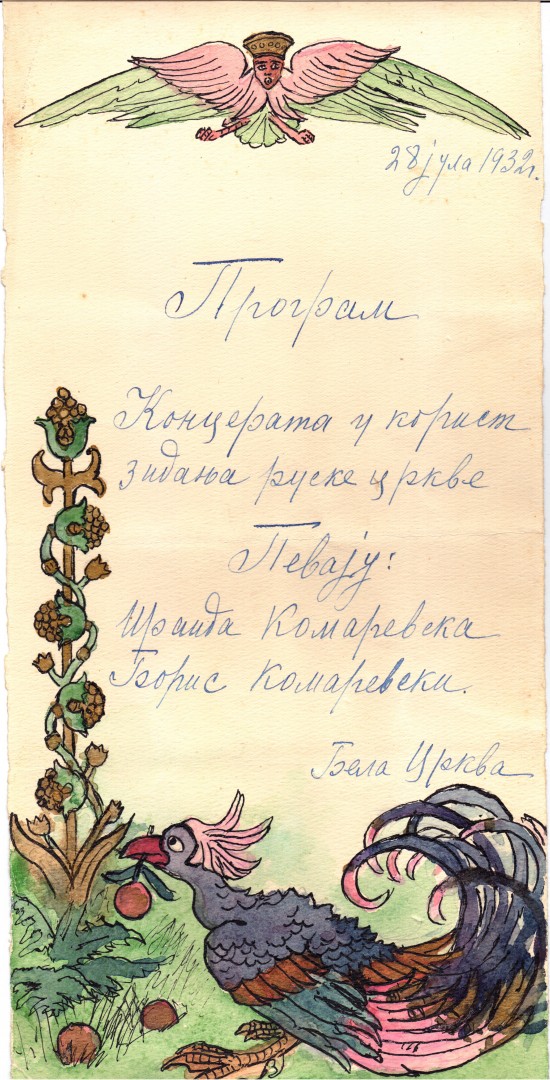 28 јула 1932 г.
Програм
Концерата у корист
зидања руске цркве
Певају:
Ираида Комаревска
Борис Комаревски.
Бела Црква